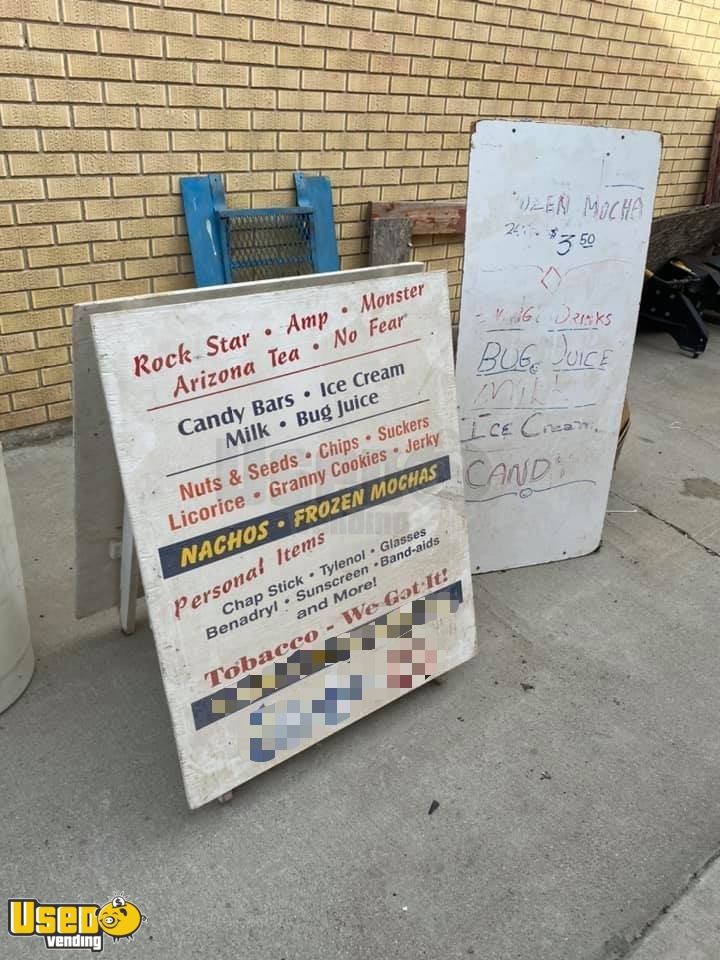 Rock Star • Amp • Monster
Arizona Tea • No Fear
Candy Bars • Ice Cream
Milk • Bug Juice
Nuts & Seeds • Chips • Suckers
Licorice • Granny Cookies • Jerky
NACHOS • FROZEN MOCHAS
Personal Items
Chap Stick • Tylenol • Glasses
Benadryl • Sunscreen • Band-aids
and More!
Tobacco - We Got It!
MOCHA
$3.50
DRINKS
BUG JUICE
MILK
ICE CREAM
CANDY
USED
vending